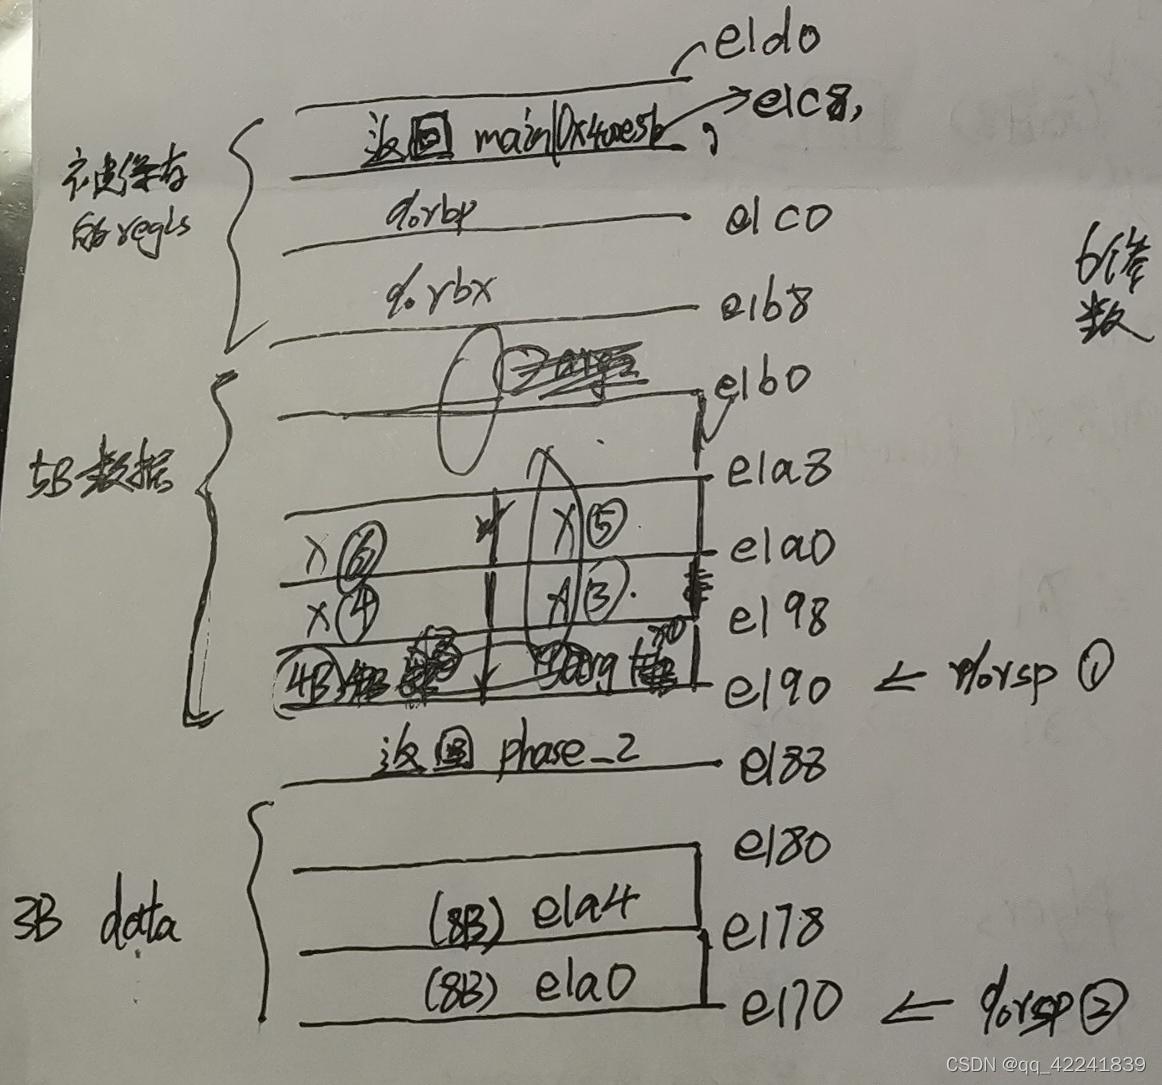 e1d0
返回 main 0x400e5b
e1c8,
被保存
的 regis
%rbp
e1c0
6个参
数
%rbx
e1b8
e1b0
5B 数据
e1a8
X ⑥
X ⑤
e1a0
X ④
X ③
e198
4B
e190
← %rsp ①
返回 phase_2
e188
e180
3B data
(8B) e1a4
e178
(8B) e1a0
e170
← %rsp ②
CSDN @qq_42241839